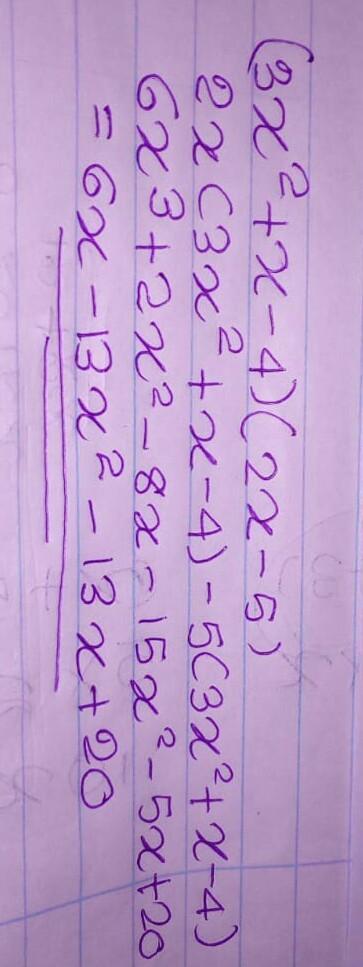 (3x² + x - 4)(2x - 5)
2x (3x² + x - 4) - 5(3x² + x - 4)
6x³ + 2x² - 8x - 15x² - 5x + 20
= 6x - 13x² - 13x + 20